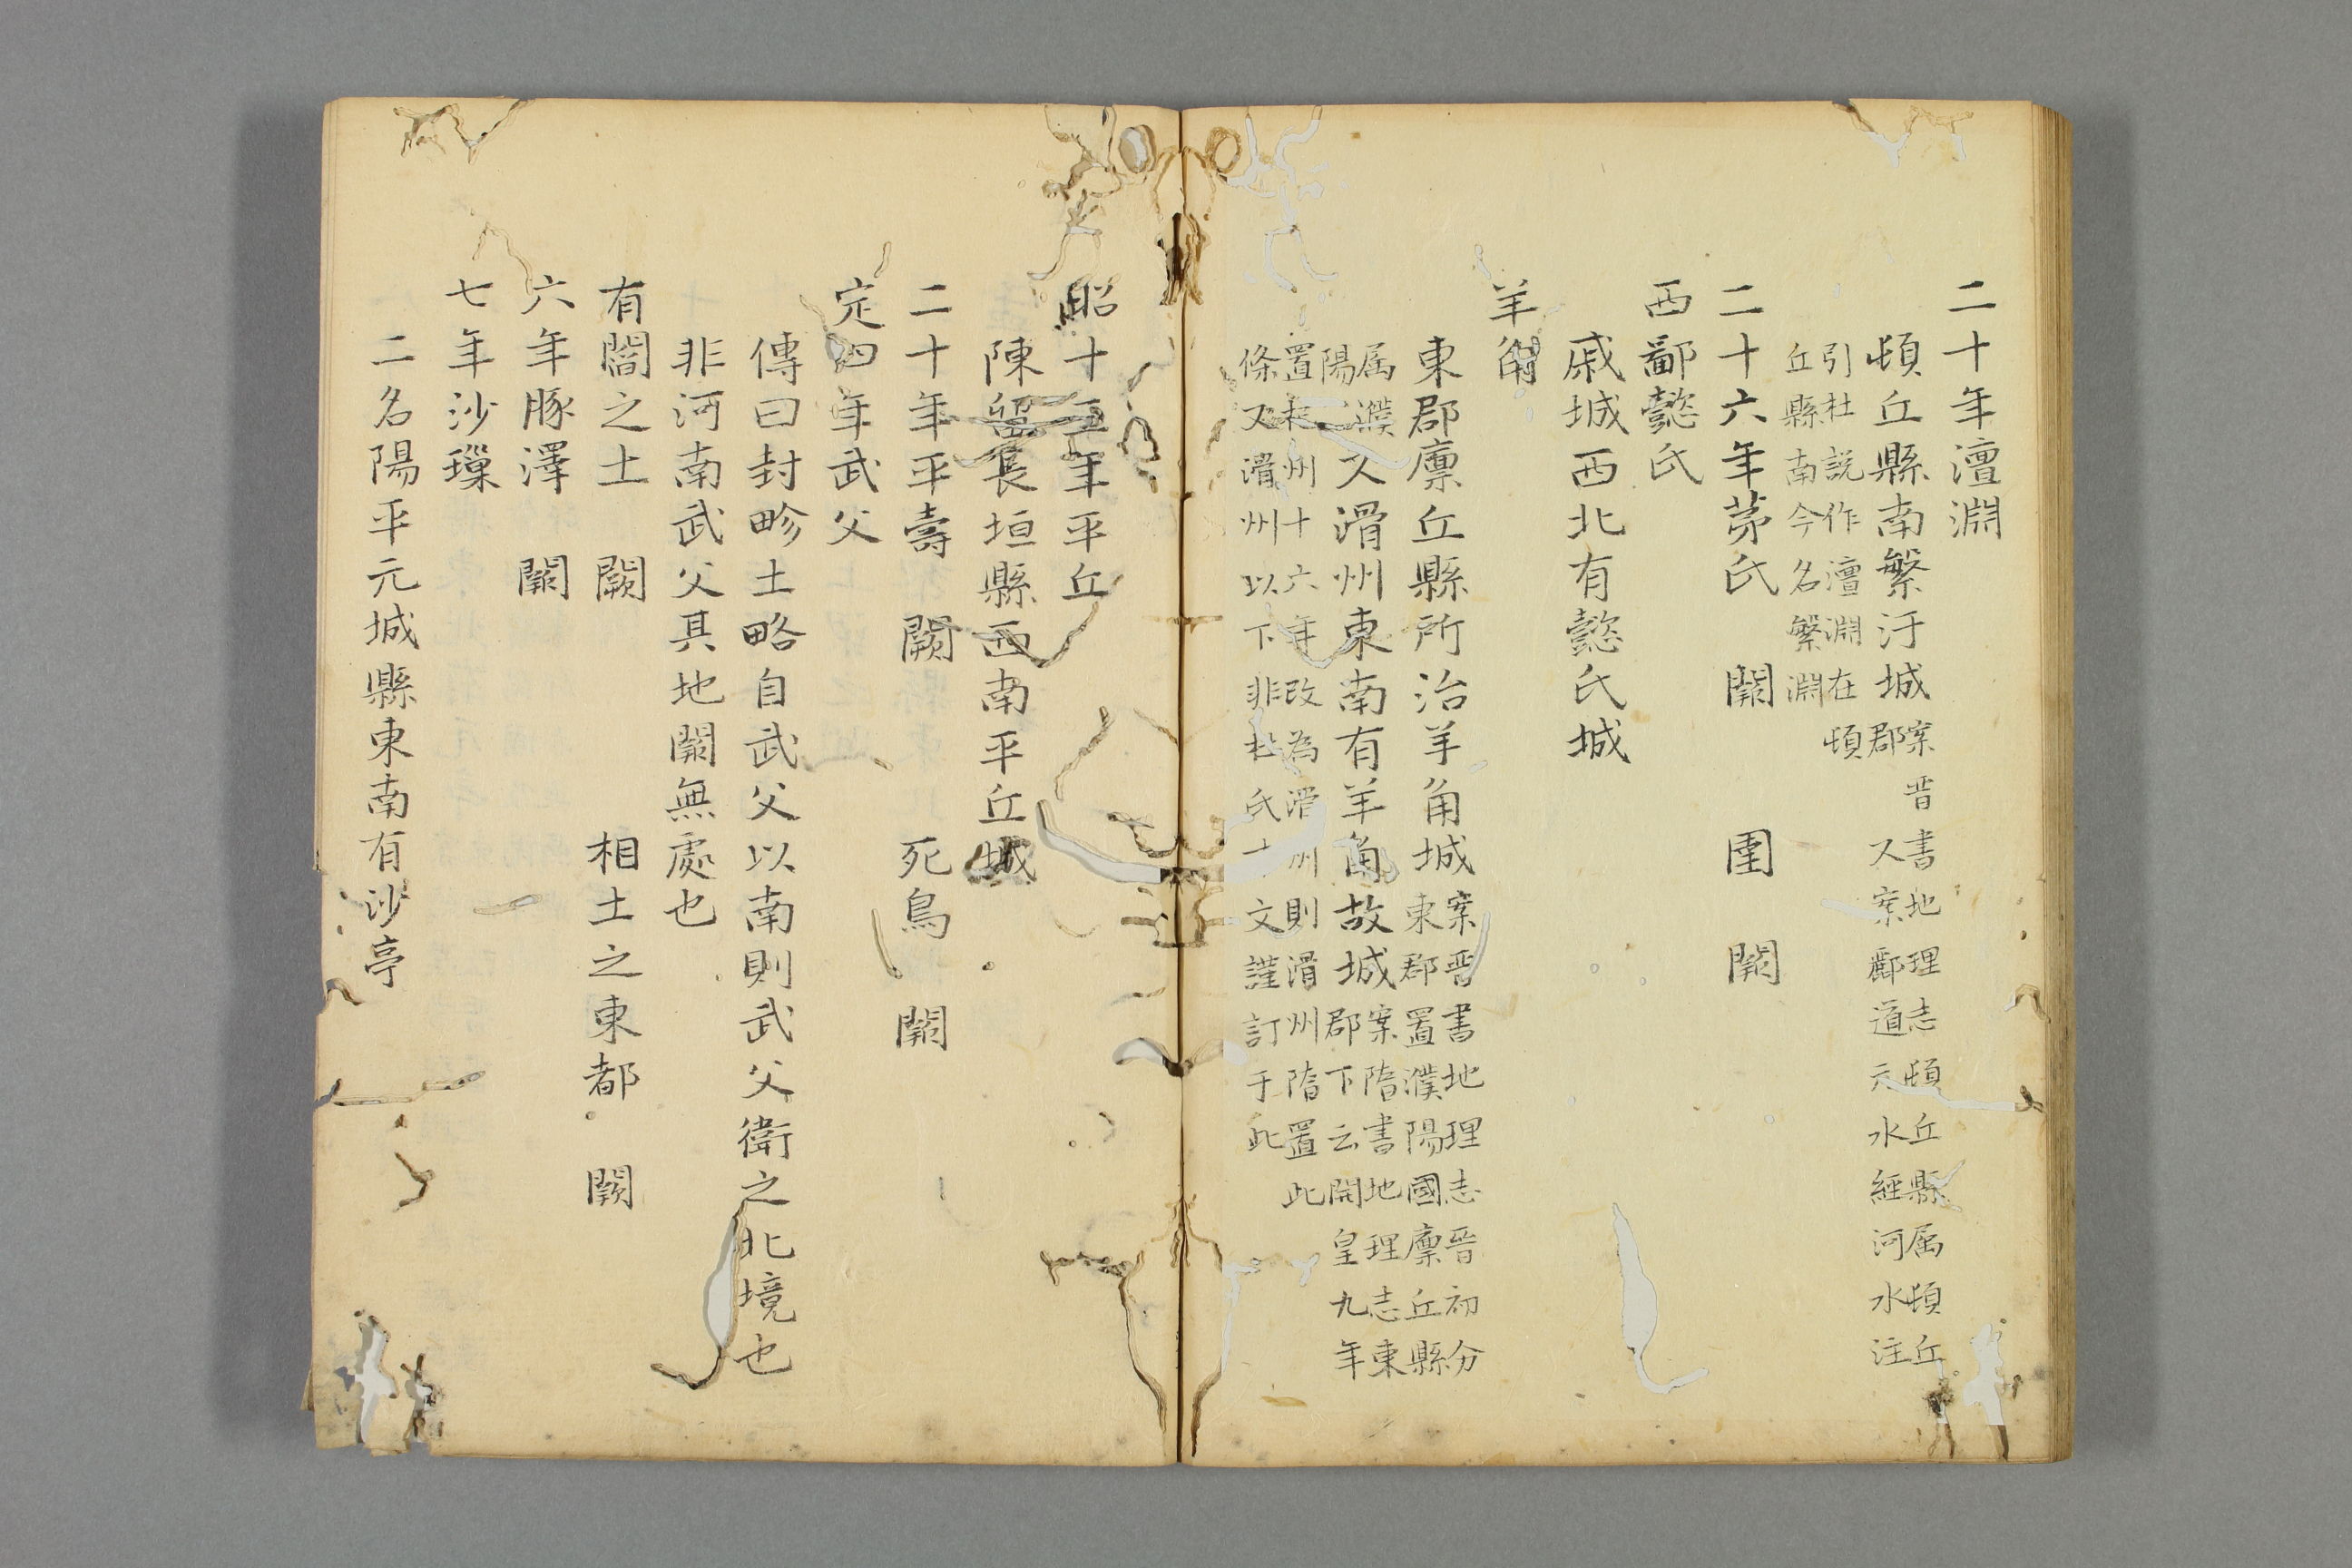 二十年澶淵
頓丘縣南繁汙城案晋書地理志頓丘縣属頓丘
郡　又案酈道元水經河水注
引杜説作澶淵在頓
丘縣南今名繁淵
二十六年茅氏　闕　圉　闕
西鄙懿氏
戚城西北有懿氏城
羊角
東郡廪丘縣所治羊角城案晋書地理志晉初分
東郡置濮陽國廪丘縣
属濮
陽
又滑州東南有羊角故城案隋書地理志東
郡下云開皇九年
置杞州十六年改為滑州則滑州隋置此
條又滑州以下非杜氏本文謹訂于此
昭十三年平丘
陳留長垣縣西南平丘城
二十年平壽　闕　死鳥　闕
定四年武父
傳曰封畛土略自武父以南則武父衛之北境也
非河南武父其地闕無處也
有閻之土　闕　相土之東都　闕
六年豚澤　闕
七年沙璅
二名陽平元城縣東南有沙亭